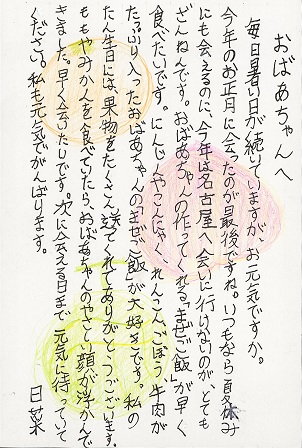 おばあちゃんへ
毎日暑い日が続いていますが、お元気ですか。
今年のお正月に会ったのが最後ですね。いつもなら夏休み
にも会えるのに、今年は名古屋へ会いに行けないのが、とても
ざんねんです。おばあちゃんの作ってくれる「まぜご飯」が早く
食べたいです。にんじんやこんにゃく、れんこん、ごぼう、牛肉が
たっぷり入ったおばあちゃんの「まぜご飯」が大好きです。私の
たん生日には、果物をたくさん送ってくれてありがとうございます。
ももやみかんを食べていたら、おばあちゃんのやさしい顔が浮かんで
きました。早く会いたいです。次に会える日まで元気に待っていて
ください。私も元気でがんばります。
日菜